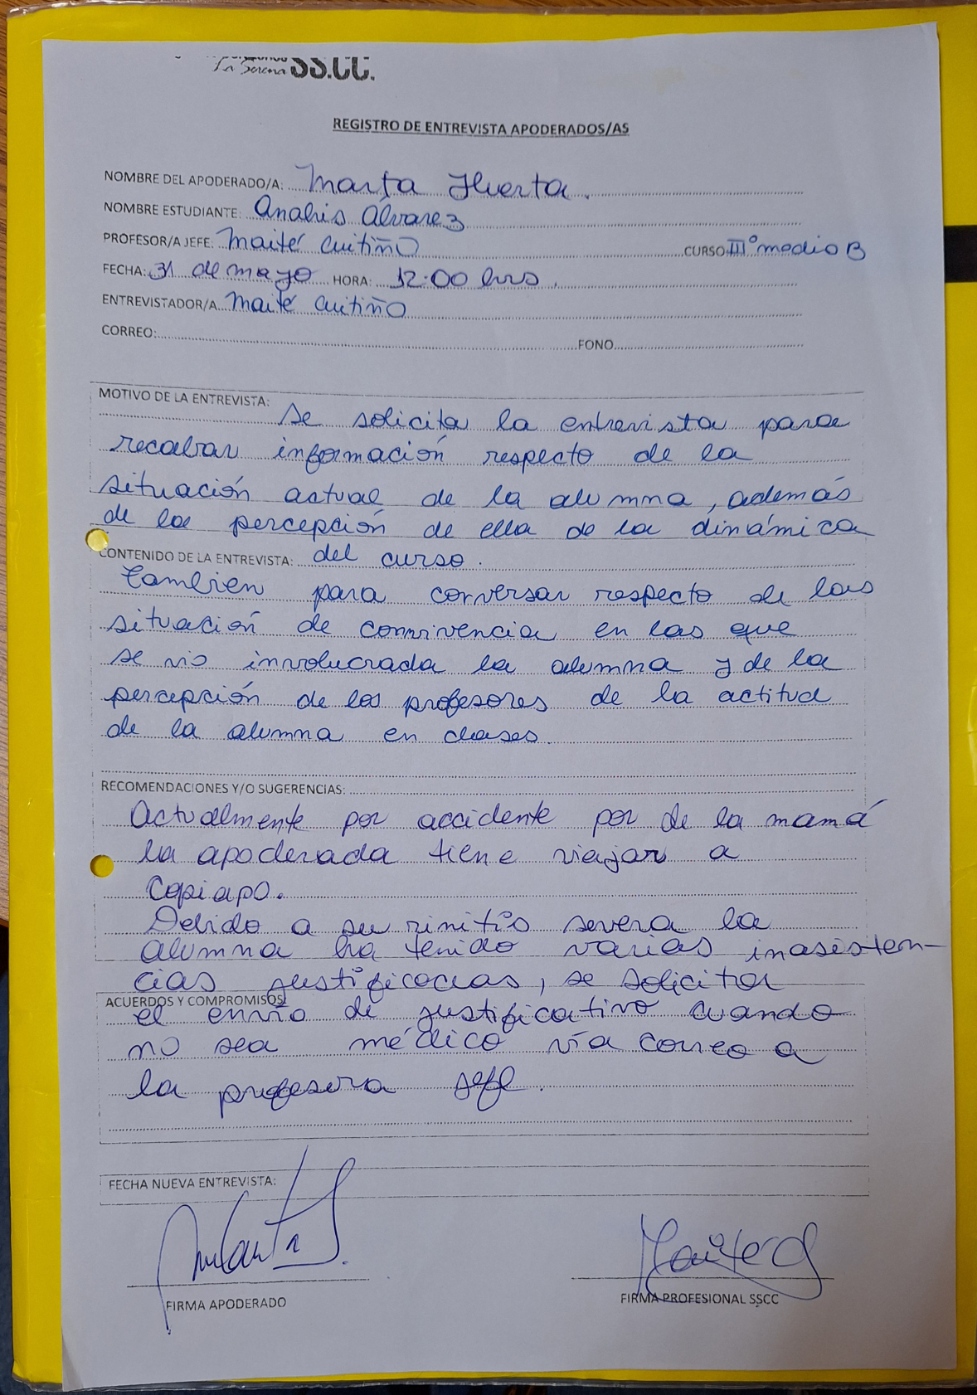 La Serena SS.CC.
REGISTRO DE ENTREVISTA APODERADOS/AS
NOMBRE DEL APODERADO/A: Marta Huerta.
NOMBRE ESTUDIANTE: Anahis Álvarez
PROFESOR/A JEFE: Maité Cuitiño CURSO: III° medio B
FECHA: 31 de mayo HORA: 12:00 hrs.
ENTREVISTADOR/A Maite Cuitiño
CORREO: FONO
MOTIVO DE LA ENTREVISTA: Se solicita la entrevista para
recabar información respecto de la
situación actual de la alumna, además
de la percepción de ella de la dinámica
CONTENIDO DE LA ENTREVISTA: del curso.
Tambien para conversar respecto de las
situación de convivencia en las que
se vio involucrada la alumna y de la
percepción de los profesores de la actitud
de la alumna en clases.
RECOMENDACIONES Y/O SUGERENCIAS:
Actualmente por accidente por de la mamá
la apoderada tiene viajar a
Copiapo.
Debido a su rinitis severa la
alumna ha tenido varias inasisten-
cias justificadas, se solicita
ACUERDOS Y COMPROMISOS:
el envío de justificativo cuando
no sea médico vía correo a
la profesora jefe.
FECHA NUEVA ENTREVISTA:
FIRMA APODERADO
FIRMA PROFESIONAL SSCC